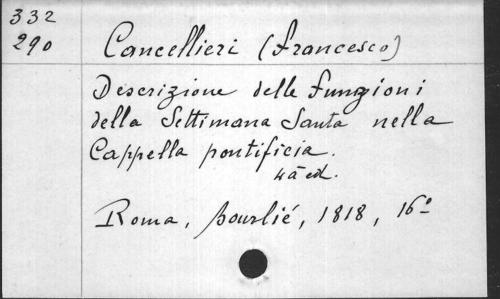 332
290
Cancellieri (Francesco)
Descrizione delle Funzioni
della Settimana Santa nella
Cappella pontificia.
4a ed.
Roma, Bourlié, 1818, 16°